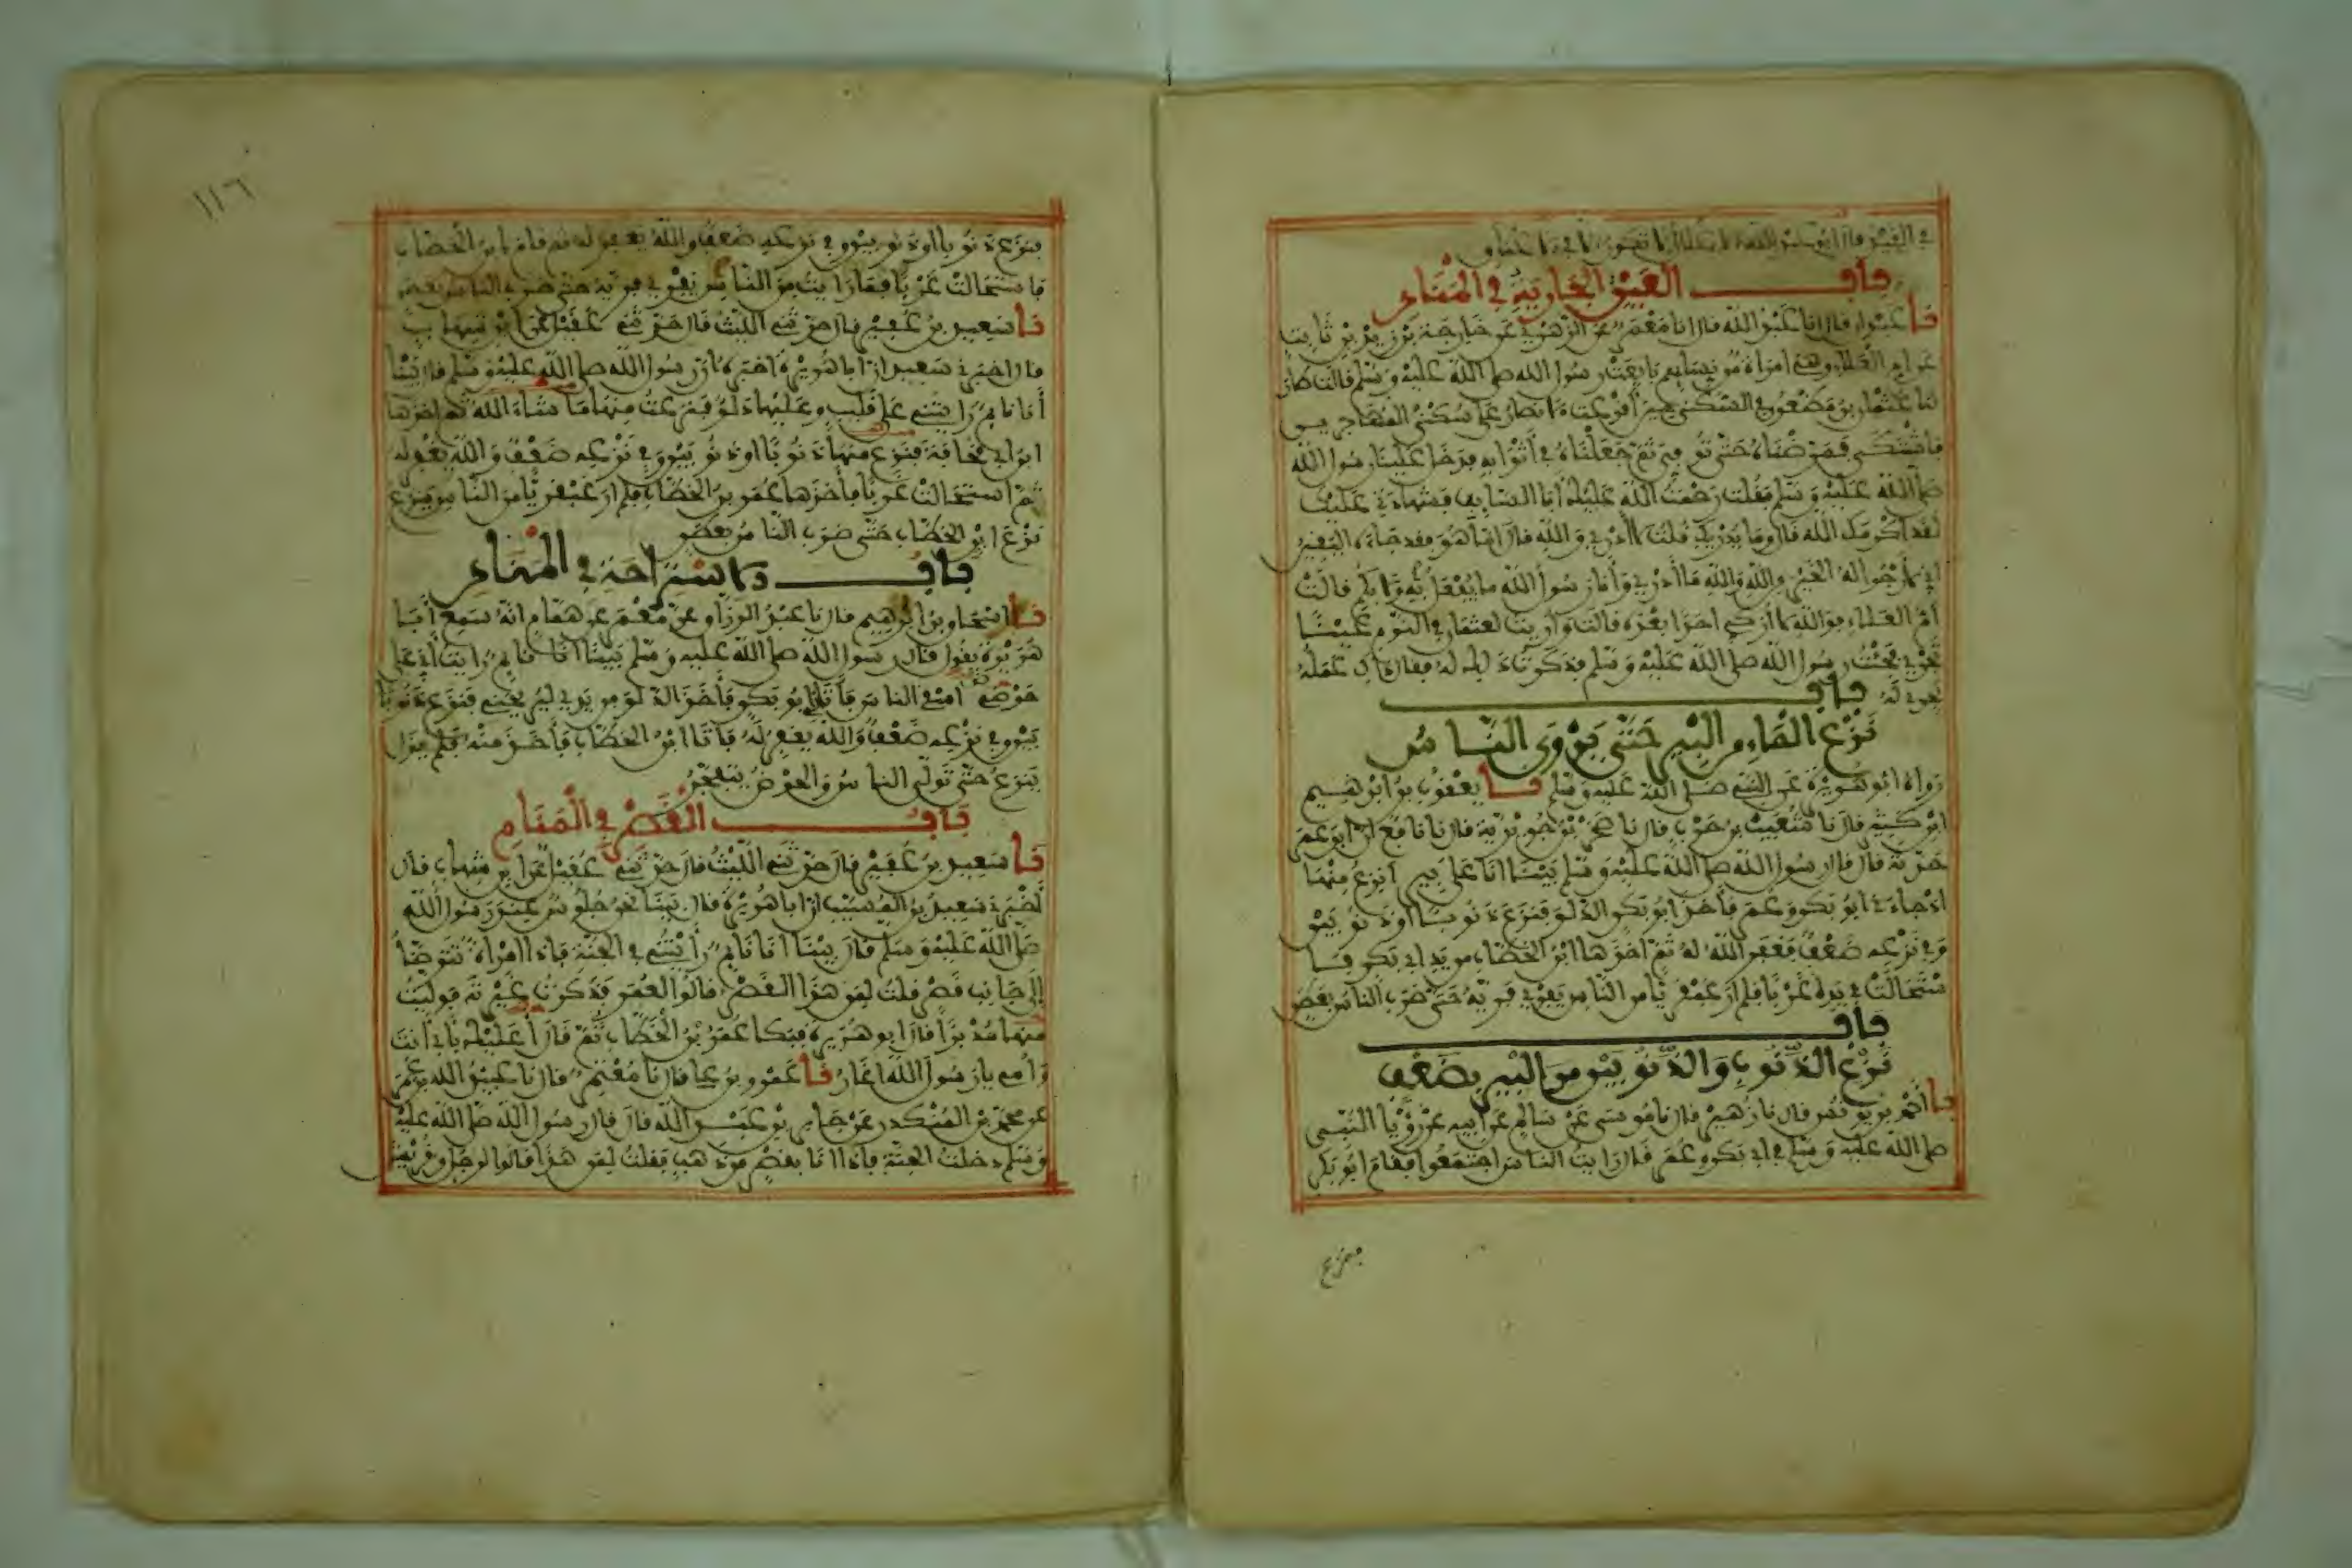 في القيد قال ابو عبد الله لا تكون الاغلال الا في الاعناق
باب العين الجارية في المنام
نا عبدان قال انا عبد الله قال انا معمر عن الزهري عن خارجة بن زيد بن ثابت
عن ام العلاء وهي امراة من نسايهم بايعت رسول الله صلى الله عليه وسلم قالت طار
لنا عثمان بن مظعون في السكنى حين اقترعت الانصار على سكنى المهاجرين
فاشتكى فمرضناه حتى توفي ثم جعلناه في أثوابه فدخل علينا رسول الله
صلى الله عليه وسلم فقلت رحمت الله عليك أبا السايب فشهادتي عليك
لقد اكرمك الله قال وما يدريك قلت لا أدري والله قال اما هو فقد جاءه اليقين
اني لأرجوا له الخير من الله والله ما أدري وأنا رسول الله ما يفعل به ولا بكم قالت
أم العلاء فوالله لا أزكي احدا بعده قالت واريت لعثمان في النوم عينا
تجري فجئت رسول الله صلى الله عليه وسلم فذكرت ذلك له فقال ذاك عمله
يجري له باب
نزع الماء من البير حتى يروى الناس
رواه ابو هريرة عن النبي صلى الله عليه وسلم نا يعقوب بن ابراهيم
ابن كثير قال نا شعيب بن حرب قال نا صخر بن جويرية قال نا نافع ان ابن عمر
حدثه قال قال رسول الله صلى الله عليه وسلم بينا انا على بير أنزع منها
اذ جاءني ابو بكر وعمر فأخذ ابو بكر الدلو فنزع ذنوبا اوذنوبين
وفي نزعه ضعف فغفر الله له ثم اخذها ابن الخطاب من يد ابي بكر فا
ستحالت في يده غربا فلم ار عبقريا من الناس يفري فريه حتى ضرب الناس بعطن
باب
نزع الذنوب والذنوبين من البير بضعف
نا أحمد بن يونس قال نا زهير قال نا موسى عن سالم عن ابيه عن رؤيا النبي
صلى الله عليه وسلم في ابي بكر وعمر قال رايت الناس اجتمعوا فقام ابو بكر
فنزع
١١٦
فنزع ذنوبا اوذنوبين وفي نزعه ضعف والله يغفر له ثم قام ابن الخطاب
فاستحالت غربا فما رايت من الناس يفري فريه حتى ضرب الناس بعطن
نا سعيد بن عفير قال حدثني الليث قال حدثني عقيل عن ابن شهاب
قال اخبرني سعيد ان أبا هريرة اخبره ان رسول الله صلى الله عليه وسلم قال بينا
أنا نايم رايتني على قليب وعليها دلو فنزعت منها ما شاء الله ثم اخذها
ابن ابي قحافة فنزع منها ذنوبا اوذنوبين وفي نزعه ضعف والله يغفر له
ثم استحالت غربا فأخذها عمر بن الخطاب فلم ار عبقريا من الناس ينزع
نزع ابن الخطاب حتى ضرب الناس بعطن
باب الاستراحة في المنام
نا اسحاق بن ابراهيم قال نا عبد الرزاق عن معمر عن همام انه سمع أبا
هريرة يقول قال رسول الله صلى الله عليه وسلم بينا أنا نايم رايت أني على
حوض اسقي الناس فأتاني ابو بكر فأخذ الدلو من يدي ليريحني فنزع ذنوبا
بين وفي نزعه ضعف والله يغفر له فأتا ابن الخطاب فأخذ منه فلم يزل
ينزع حتى تولى الناس والحوض يتفجر
باب القصر في المنام
نا سعيد بن عفير قال حدثني الليث قال حدثني عقيل عن ابن شهاب قال
أخبرني سعيد بن المسيب ان ابا هريرة قال بينا نحن جلوس عند رسول الله
صلى الله عليه وسلم قال بينا انا نايم رأيتني في الجنة فاذا امراة تتوضأ
إلى جانب قصر قلت لمن هذا القصر قالوا لعمر فذكرت غيرته فوليت
منها مدبرا قال ابو هريرة فبكا عمر بن الخطاب ثم قال أعليك بأبي أنت
وأمي يا رسول الله اغار نا عمرو بن علي قال نا معتمر قال نا عبيد الله بن عمر
عن محمد بن المنكدر عن جابر بن عبد الله قال قال رسول الله صلى الله عليه
وسلم دخلت الجنة فاذا انا بقصر من ذهب فقلت لمن هذا قالوا لرجل من قريش